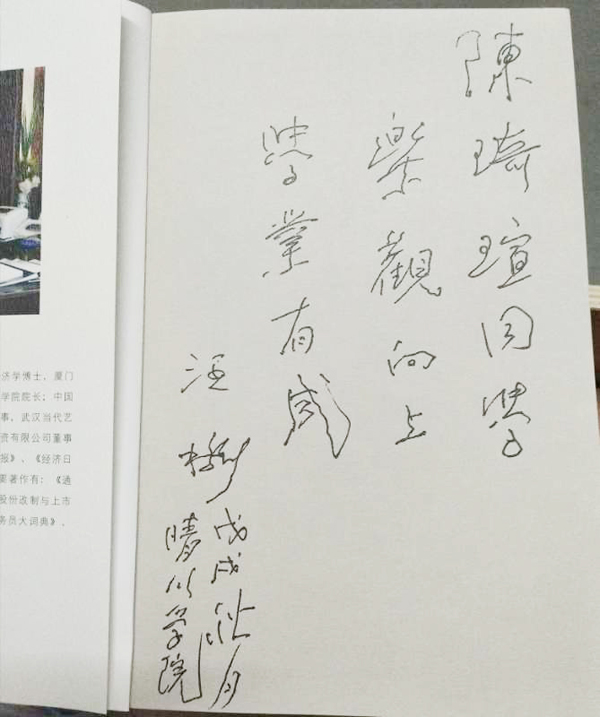 陳琦瑄同學
樂觀向上
學業有成
汪
戊戌秋月
晴川学院
济学博士，厦门
学院院长；中国
事，武汉当代艺
资有限公司董事
报》、《经济日
要著作有：《通
股份改制与上市
务员大词典》、